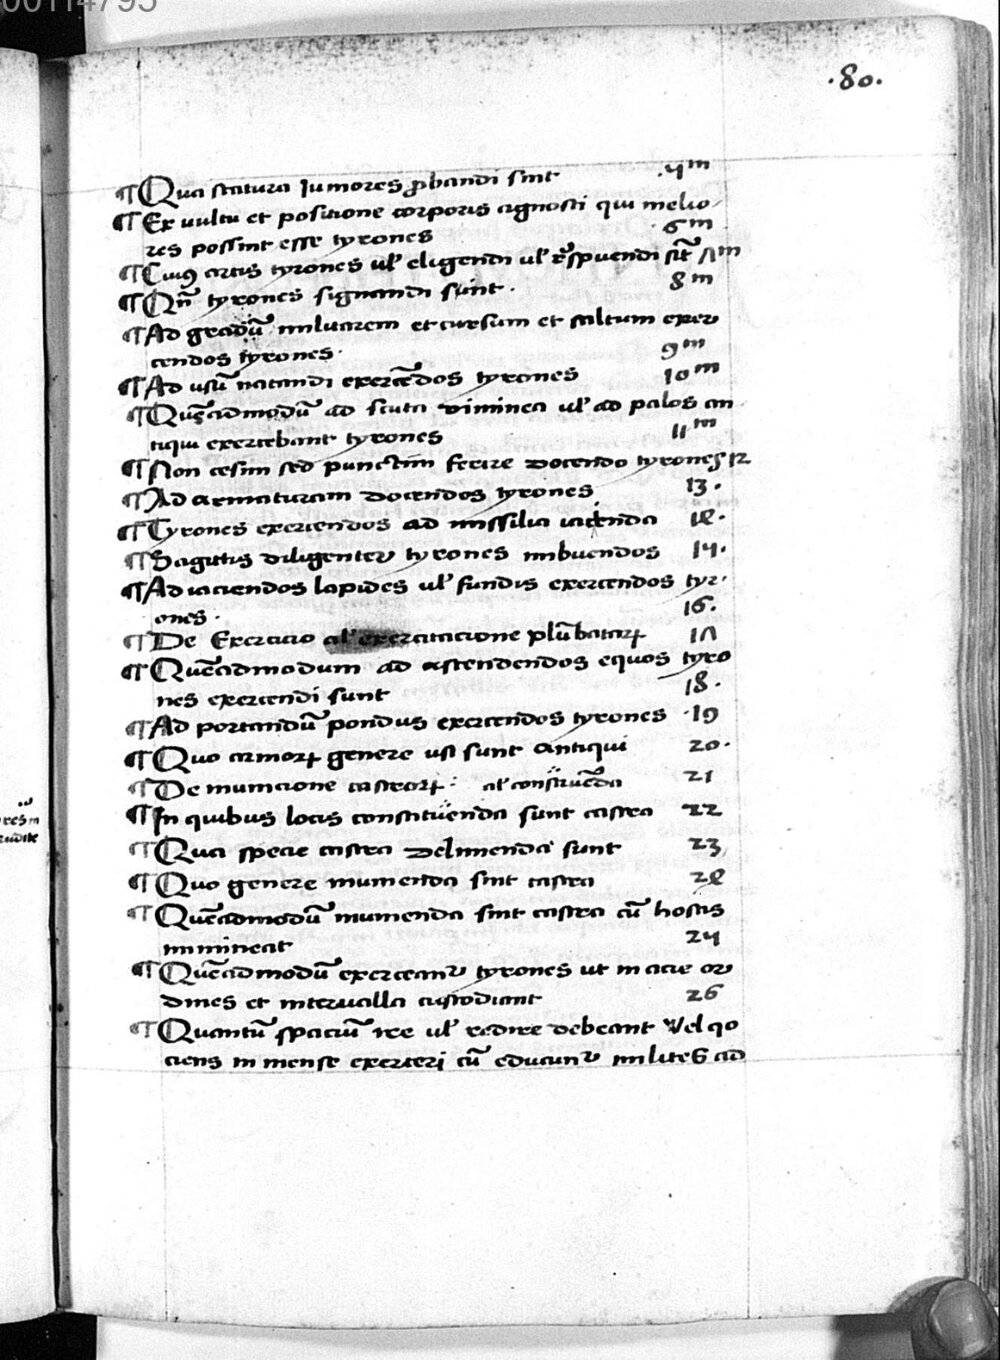 00114795
.80.
¶ Qua statura Iuniores ꝓbandi sint .4m
¶ Ex uultu et positione corporis agnosci qui melio-
res possint esse tyrones .6m
¶ Cuiꝯ artis tyrones ul' eligendi ul' respuendi sīt 7m
¶ Qn̄ tyrones signandi sunt . 8m
¶ Ad gradū militarem et cursum et saltum exer
cendos tyrones . 9m
¶ Ad usū natandi exercēdos tyrones 10m
¶ Quēadmodū ad scuta viminea ul' ad palos an
tiqui exercebant tyrones 11m
¶ Non cesim sed punctim ferire docendo tyrones 12
¶ Ad armaturam docendos tyrones 13.
¶ Tyrones exercendos ad missilia iacienda 14.
¶ Sagittis diligenter tyrones imbuendos 15.
¶ Ad iaciendos lapides ul' fundis exercendos tyr-
ones . 16.
¶ De Exercicio al' exercitacione plūbatarꝝ 17
¶ Quēadmodum ad ascendendos equos tyro
nes exercendi sunt 18.
¶ Ad portandū pondus exercendos tyrones .19
¶ Quo armorꝝ genere usi sunt antiqui 20.
¶ De municione castrorꝝ : al' construēda 21
¶ In quibus locis constituenda sunt castra 22
¶ Qua specie castra delinienda sunt 23
¶ Quo genere munienda sint castra 24
¶ Quēadmodū munienda sint castra cū hostis
immineat 25
¶ Quēadmodū exerceantur tyrones ut in acie or
dines et interualla custodiant 26
¶ Quantū spaciū ire ul' redire debeant Vel quo
ciens in mense exerceri cū educuntur milites ad